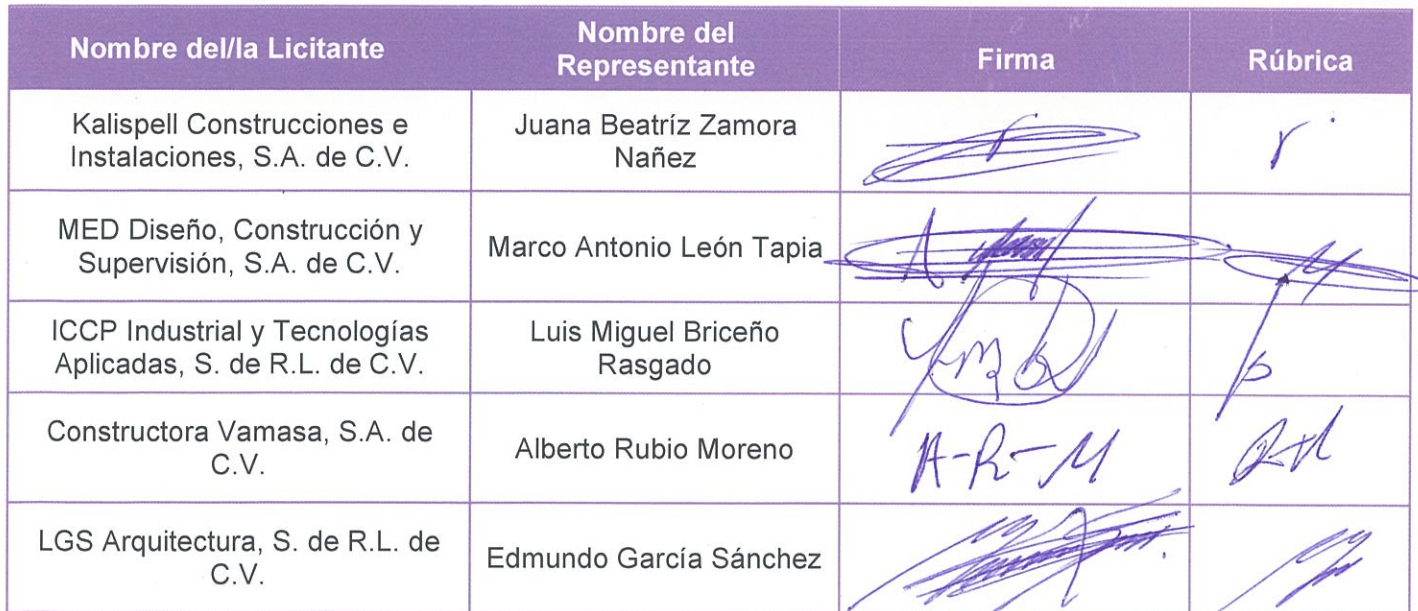 Nombre del/la Licitante
Nombre del
Representante
Firma
Rúbrica
Kalispell Construcciones e
Instalaciones, S.A. de C.V.
Juana Beatríz Zamora
Nañez
MED Diseño, Construcción y
Supervisión, S.A. de C.V.
Marco Antonio León Tapia
ICCP Industrial y Tecnologías
Aplicadas, S. de R.L. de C.V.
Luis Miguel Briceño
Rasgado
Constructora Vamasa, S.A. de
C.V.
Alberto Rubio Moreno
A-R-M
LGS Arquitectura, S. de R.L. de
C.V.
Edmundo García Sánchez